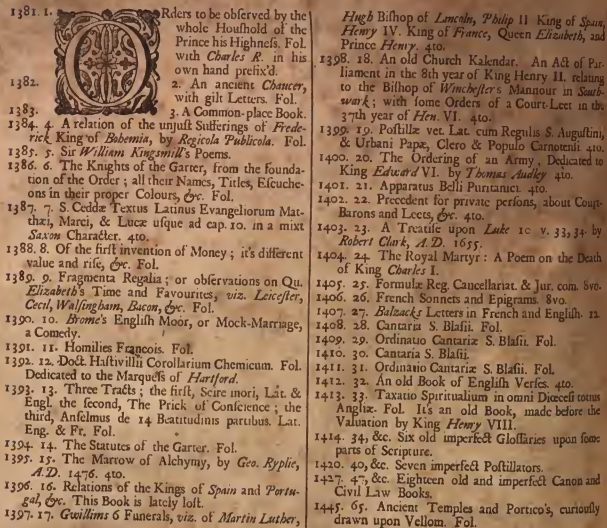 1381. 1. ORders to be observed by the
whole Houshold of the
Prince his Highness. Fol.
with Charles R. in his
own hand prefix'd.
1382. 2. An ancient Chaucer,
with gilt Letters. Fol.
1383. 3. A Common-place Book.
1384. 4. A relation of the unjust Sufferings of Frede-
rick King of Bohemia, by Regicola Publicola. Fol.
1385. 5. Sir William Kingsmill's Poems.
1386. 6. The Knights of the Garter, from the founda-
tion of the Order; all their Names, Titles, Escuche-
ons in their proper Colours, &c. Fol.
1387. 7. S. Ceddæ Textus Latinus Evangeliorum Mat-
thæi, Marci, & Lucæ usque ad cap. 10. in a mixt
Saxon Character. 4to.
1388. 8. Of the first invention of Money; it's different
value and rise, &c. Fol.
1389. 9. Fragmenta Regalia; or observations on Qu.
Elizabeth's Time and Favourites, viz. Leicester,
Cecil, Walsingham, Bacon, &c. Fol.
1390. 10. Brome's English Moor, or Mock-Marriage,
a Comedy.
1391. 11. Homilies François. Fol.
1392. 12. Doct. Hastivillii Corollarium Chemicum. Fol.
Dedicated to the Marquess of Hartford.
1393. 13. Three Tracts; the first, Scire mori, Lat. &
Engl. the second, The Prick of Conscience; the
third, Anselmus de 14 Beatitudinis partibus. Lat.
Eng. & Fr. Fol.
1394. 14. The Statutes of the Garter. Fol.
1395. 15. The Marrow of Alchymy, by Geo. Ryplie,
A.D. 1476. 4to.
1396. 16. Relations of the Kings of Spain and Portu-
gal, &c. This Book is lately lost.
1397. 17. Gwillims 6 Funerals, viz. of Martin Luther,
Hugh Bishop of Lincoln, Philip II King of Spain,
Henry IV. King of France, Queen Elizabeth, and
Prince Henry. 4to.
1398. 18. An old Church Kalendar. An Act of Par-
liament in the 8th year of King Henry II. relating
to the Bishop of Winchester's Mannour in South-
wark; with some Orders of a Court-Leet in the
37th year of Hen. VI. 4to.
1399. 19. Postillæ vet. Lat. cum Regulis S. Augustini,
& Urbani Papæ, Clero & Populo Carnotensi. 4to.
1400. 20. The Ordering of an Army, Dedicated to
King Edward VI. by Thomas Audley. 4to.
1401. 21. Apparatus Belli Puritanici. 4to.
1402. 22. Precedent for private persons, about Court-
Barons and Leets, &c. 4to.
1403. 23. A Treatise upon Luke 10 v. 33, 34. by
Robert Clark, A.D. 1655.
1404. 24. The Royal Martyr: A Poem on the Death
of King Charles I.
1405. 25. Formulæ Reg. Cancellariat. & Jur. com. 8vo.
1406. 26. French Sonnets and Epigrams. 8vo.
1407. 27. Balzacks Letters in French and English. 12.
1408. 28. Cantaria S. Blasii. Fol.
1409. 29. Ordinatio Cantariæ S. Blasii. Fol.
1410. 30. Cantaria S. Blasii.
1411. 31. Ordinatio Cantariæ S. Blasii. Fol.
1412. 32. An old Book of English Verses. 4to.
1413. 33. Taxatio Spiritualium in omni Diœcesi totius
Angliæ. Fol. It's an old Book, made before the
Valuation by King Henry VIII.
1414. 34, &c. Six old imperfect Glossaries upon some
parts of Scripture.
1420. 40, &c. Seven imperfect Postillators.
1427. 47, &c. Eighteen old and imperfect Canon and
Civil Law Books.
1445. 65. Ancient Temples and Portico's, curiously
drawn upon Vellom. Fol.